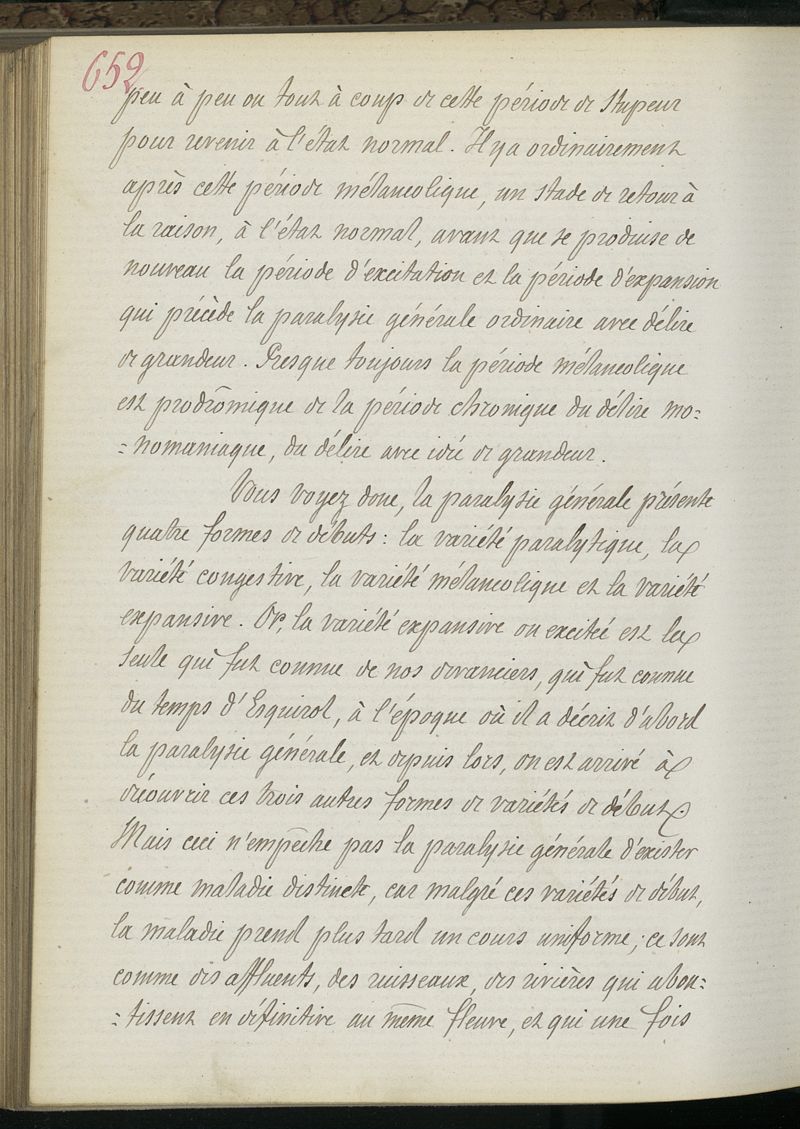 652
peu à peu ou tout à coup de cette période de stupeur
pour revenir à l'état normal. Il y a ordinairement
après cette période mélancolique, un stade de retour à
la raison, à l'état normal, avant que se produise de
nouveau la période d'excitation et la période d'expansion
qui précède la paralysie générale ordinaire avec délire
de grandeur. Presque toujours la période mélancolique
est prodrômique de la période chronique du délire mo=
=nomaniaque, du délire avec idée de grandeur.
Vous voyez donc, la paralysie générale présente
quatre formes de débuts : la variété paralytique, la
variété congestive, la variété mélancolique et la variété
expansive. Or, la variété expansive ou excitée est la
seule qui fut connue de nos devanciers, qui fut connue
du temps d'Esquirol, à l'époque où il a décrit d'abord
la paralysie générale, et depuis lors, on est arrivé à
découvrir ces trois autres formes de variétés de début.
Mais ceci n'empêche pas la paralysie générale d'exister
comme maladie distincte, car malgré ces variétés de début,
la maladie prend plus tard un cours uniforme ; ce sont
comme des affluents, des ruisseaux, des rivières qui abou=
=tissent en définitive au même fleuve, et qui une fois